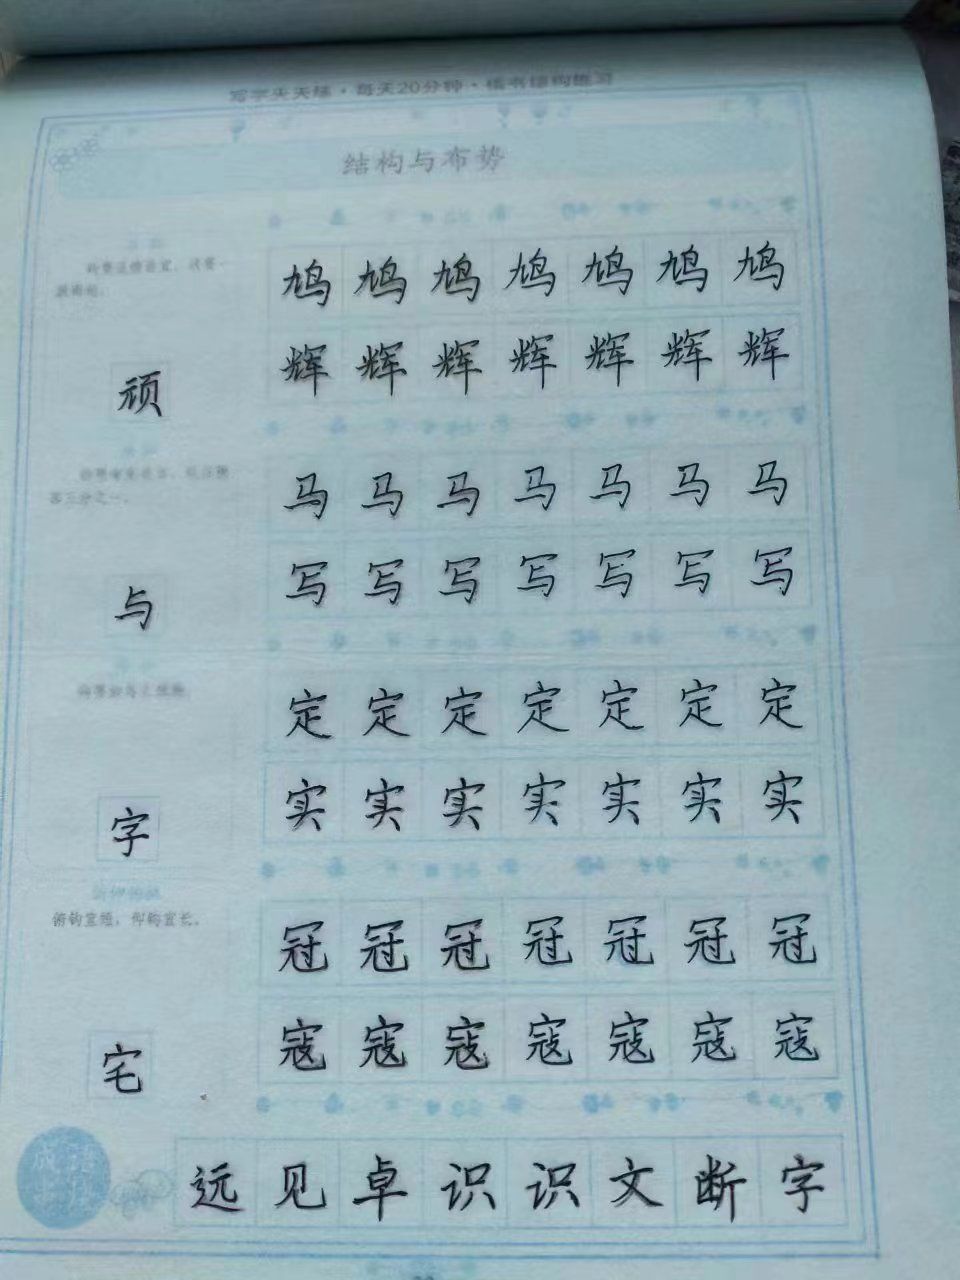 写字天天练·每天20分钟·楷书结构练习
结构与布势
鸠鸠鸠鸠鸠鸠鸠
辉辉辉辉辉辉辉
顽
马马马马马马马
写写写写写写写
与
定定定定定定定
实实实实实实实
字
俯钩宜短，仰钩宜长。
冠冠冠冠冠冠冠
寇寇寇寇寇寇寇
宅
远见卓识识文断字